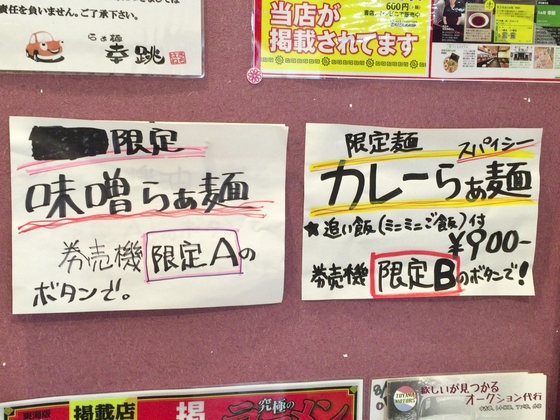 責任を負いません。ご了承下さい。
らぁ麺
幸跳
600円
当店が
掲載されてます
限定
味噌らぁ麺
券売機 限定Aの
ボタンで。
限定麺 スパイシー
カレーらぁ麺
★追い飯(ミニミニご飯)付
¥900-
券売機 限定Bのボタンで!
東海版
掲載店
究極の
ラーメン
TOYAMA MOTORS
欲しいが見つかる
オークション代行